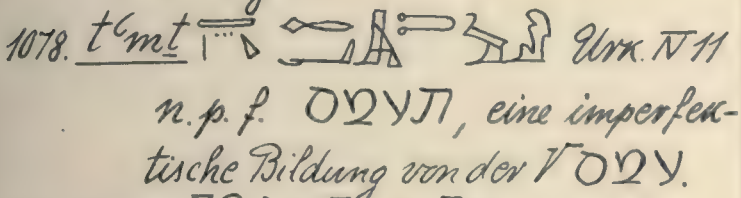 1078. tʿmṯ Urk. IV 11
n. p. f. תעמס, eine imperfek-
tische Bildung von der √עמס.